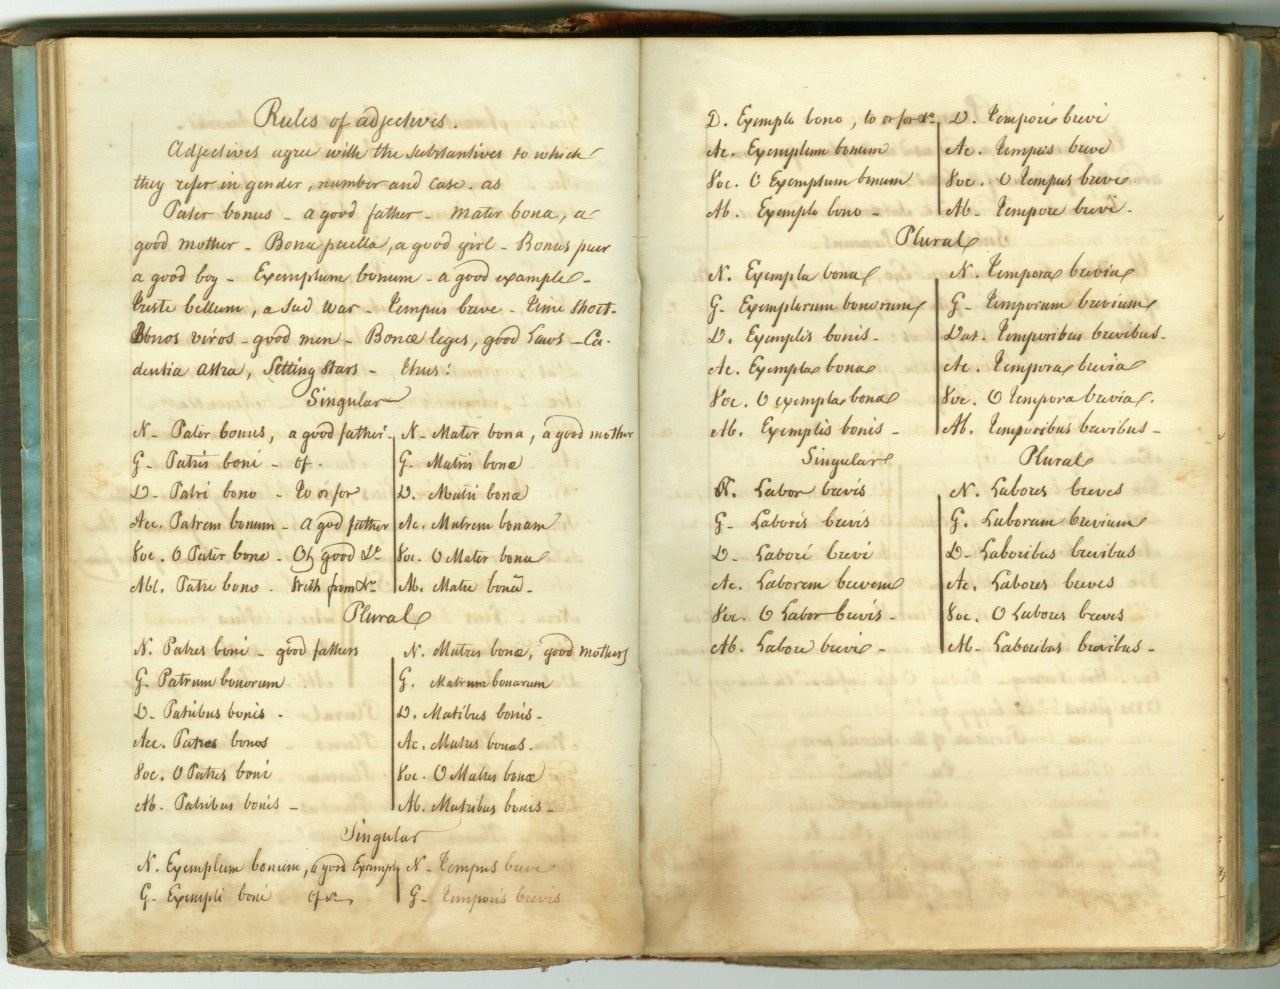 Rules of adjectives.
Adjectives agree with the substantives to which
they refer in gender, number and case. as
Pater bonus - a good father - Mater bona, a
good mother - Bona puella, a good girl - Bonus puer
a good boy - Exemplum bonum - a good example -
triste bellum, a sad war - tempus breve - time short -
Bonos viros - good men - Bonæ leges, good Laws - Ca-
dentia astra, Setting stars - thus:
Singular
N- Pater bonus, a good father.
G- Patris boni - of -
D- Patri bono - to or for
Acc. Patrem bonum - a god father
Voc. O Pater bone - Oh good &c
Abl. Patre bono - With from &c
N- Mater bona, a good mother
G. Matris bonæ
D. Matri bonæ
Ac. Matrem bonam
Voc. O Mater bona
Ab. Matre bonâ -
Plural
N. Patres boni - good fathers
G. Patrum bonorum
D- Patribus bonis -
Acc. Patres bonos
Voc. O Patres boni
Ab. Patribus bonis -
N. Matres bonæ, good mothers
G. Matrum bonarum
D. Matibus bonis -
Ac. Matres bonas -
Voc. O Matres bonæ
Ab. Matribus bonis -
Singular
N. Exemplum bonum, a good Example
G- Exempli boni of &c,
N- tempus breve
G- temporis brevis
D. Exemplo bono, to or for &c
Ac. Exemplum bonum
Voc. O Exemplum bonum
Ab. Exemplo bono -
D. tempori brevi
Ac. tempus breve
Voc. O tempus breve
Ab- tempore brevi -
Plural
N. Exempla bona
G- Exemplorum bonorum
D. Exemplis bonis -
Ac. Exempla bona
Voc. O exempla bona
Ab. Exemplis bonis -
N. tempora brevia
G- temporum brevium
Dat. temporibus brevibus -
Ac. tempora brevia
Voc. O tempora brevia.
Ab. temporibus brevibus -
Singular
N. Labor brevis
G- Laboris brevis
D- Labori brevi
Ac. Laborem brevem
Voc. O Labor brevis -
Ab. Labore brevi -
Plural
N. Labores breves
G. Laborum brevium
D- Laboribus brevibus
Ac. Labores breves
Voc. O Labores breves
Ab- Laboribus brevibus -